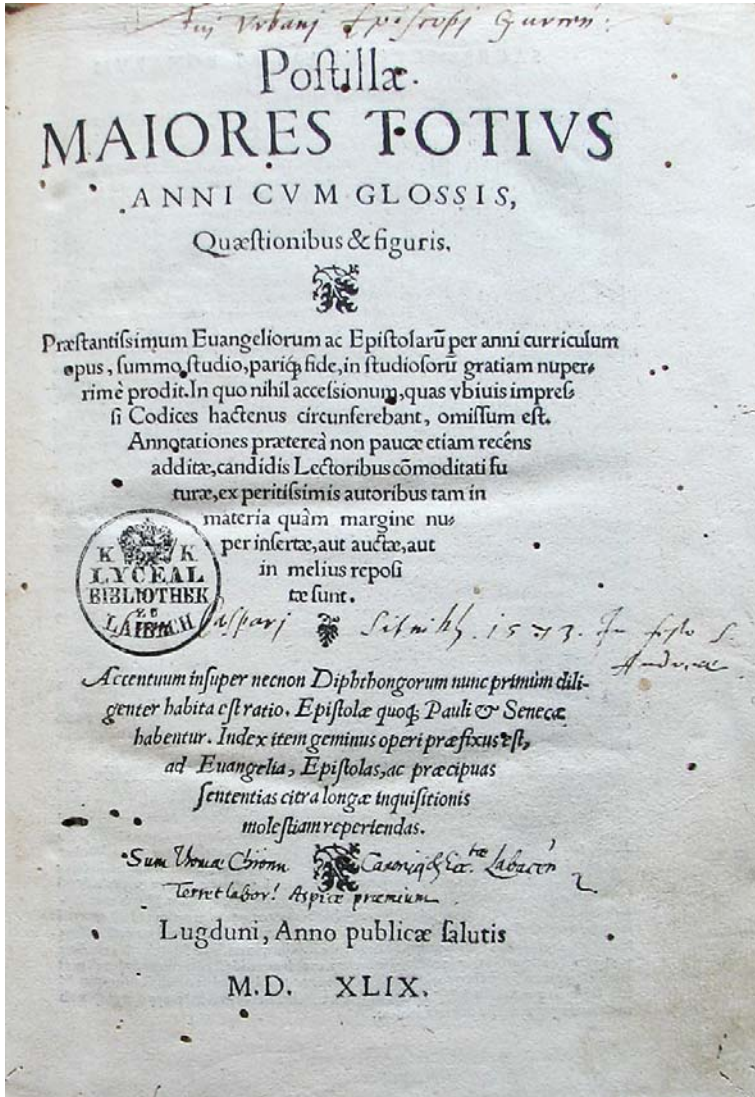 Fuj Vrbanj Episcopj Gurcen:
Postillæ.
MAIORES TOTIVS
ANNI CVM GLOSSIS,
Quæstionibus & figuris.
Præstantissimum Euangeliorum ac Epistolarū per anni curriculum
opus, summo studio, pariq; fide, in studiosorū gratiam nuper-
rimè prodit. In quo nihil accessionum, quas vbiuis impres-
si Codices hactenus circunferebant, omissum est.
Annotationes prætereà non paucæ etiam recéns
additæ, candidis Lectoribus cōmoditati fu
turæ, ex peritissimis autoribus tam in
materia quàm margine nu-
per insertæ, aut auctæ, aut
in melius reposi
tæ sunt.
K K
LYCEAL
BIBLIOTHEK
ZU
LAIBACH
Casparj 1573. In festo S.
Andreæ
Accentuum insuper necnon Diphthongorum nunc primùm dili-
genter habita est ratio. Epistolæ quoq; Pauli & Senecæ
habentur. Index item geminus operi præfixus est,
ad Euangelia, Epistolas, ac præcipuas
sententias citra longæ inquisitionis
molestiam reperiendas.
Sum Thomæ Chrönn Labacen
Terret labor! Aspice præmium
Lugduni, Anno publicæ salutis
M.D. XLIX.